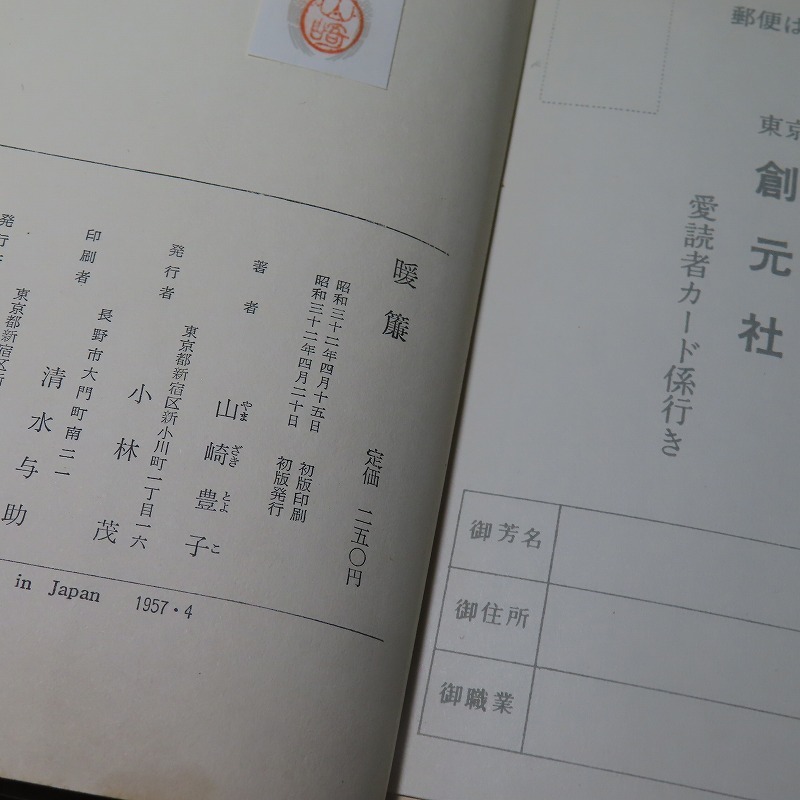 暖簾
定価 二五〇円
昭和三十二年四月十五日 初版印刷
昭和三十二年四月二十日 初版発行
著者 山崎豊子
やま ざき とよ こ
東京都新宿区新小川町一丁目一六
発行者 小林茂
長野市大門町南二一
印刷者 清水与助
東京都新宿区新
発行
in Japan 1957・4
郵便は
東京
創元社
愛読者カード係行き
御芳名
御住所
御職業